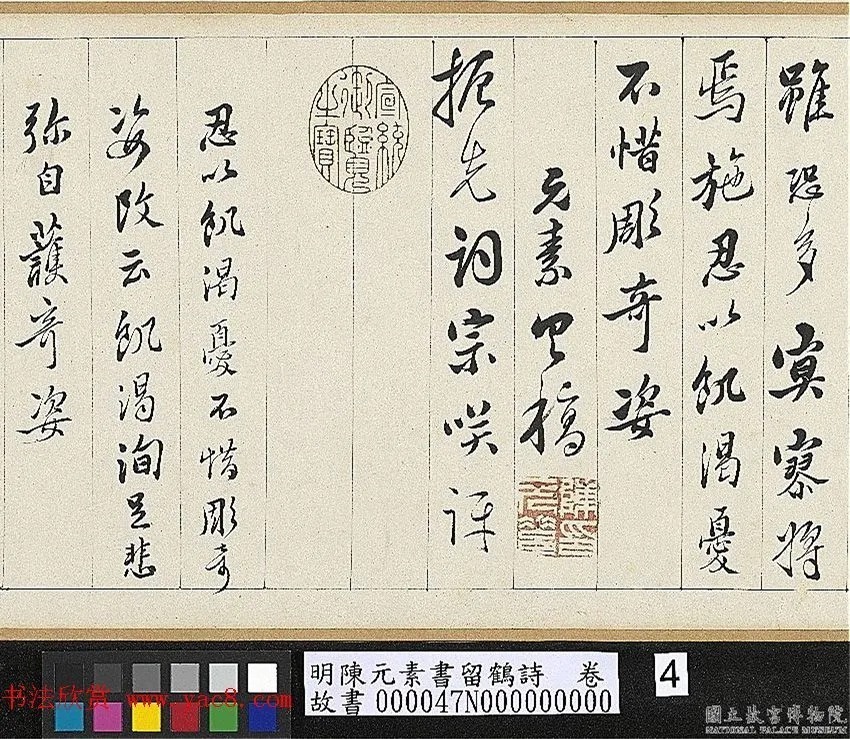 雖恐多寘寮將
焉施忍以飢渴憂
不惜彫奇姿
元素具稿
振先詞宗咲評
宣統御覽之寶
忍以飢渴憂不惜彫奇
姿改云飢渴洵足悲
弥自護奇姿
明陳元素書留鶴詩 卷
故書 000047N000000000
4
书法欣赏 www.yac8.com
國立故宮博物院
NATIONAL PALACE MUSEUM